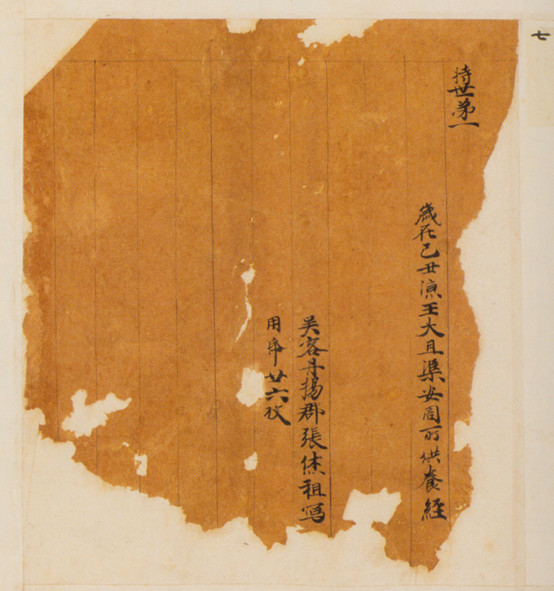 七
持世第一
歳在己丑涼王大且渠安周所供養經
吳客丹揚郡張休祖寫
用帋廿六枚